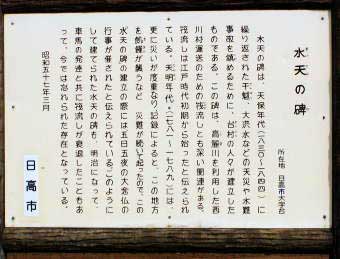 水天の碑
所在地 日高市大字台
水天の碑は、天保年代(一八三〇〜一八四四)に
繰り返された干魃、大洪水などの天災や水難
事故を鎮めるために、台村の人々が建立した
ものである。この碑は、高麗川を利用した西
川材運送のための筏流しとも深い関連がある。
筏流しは江戸時代初期から始ったと伝えられ
ている。天明年代(一七八一〜一七八九)には、
更に災いが度重なり記録によると、この地方
を飢饉が襲うなど、災難が続いて起ったので、この
水天の碑の建立の際には五日五夜の大念仏の
行事が催されたと伝えられている。このように
して建てられた水天の碑も、明治になって、
車馬の発達と共に筏流しが衰退したこともあ
って、今では忘れられた存在となっている。
昭和五十七年三月
日高市